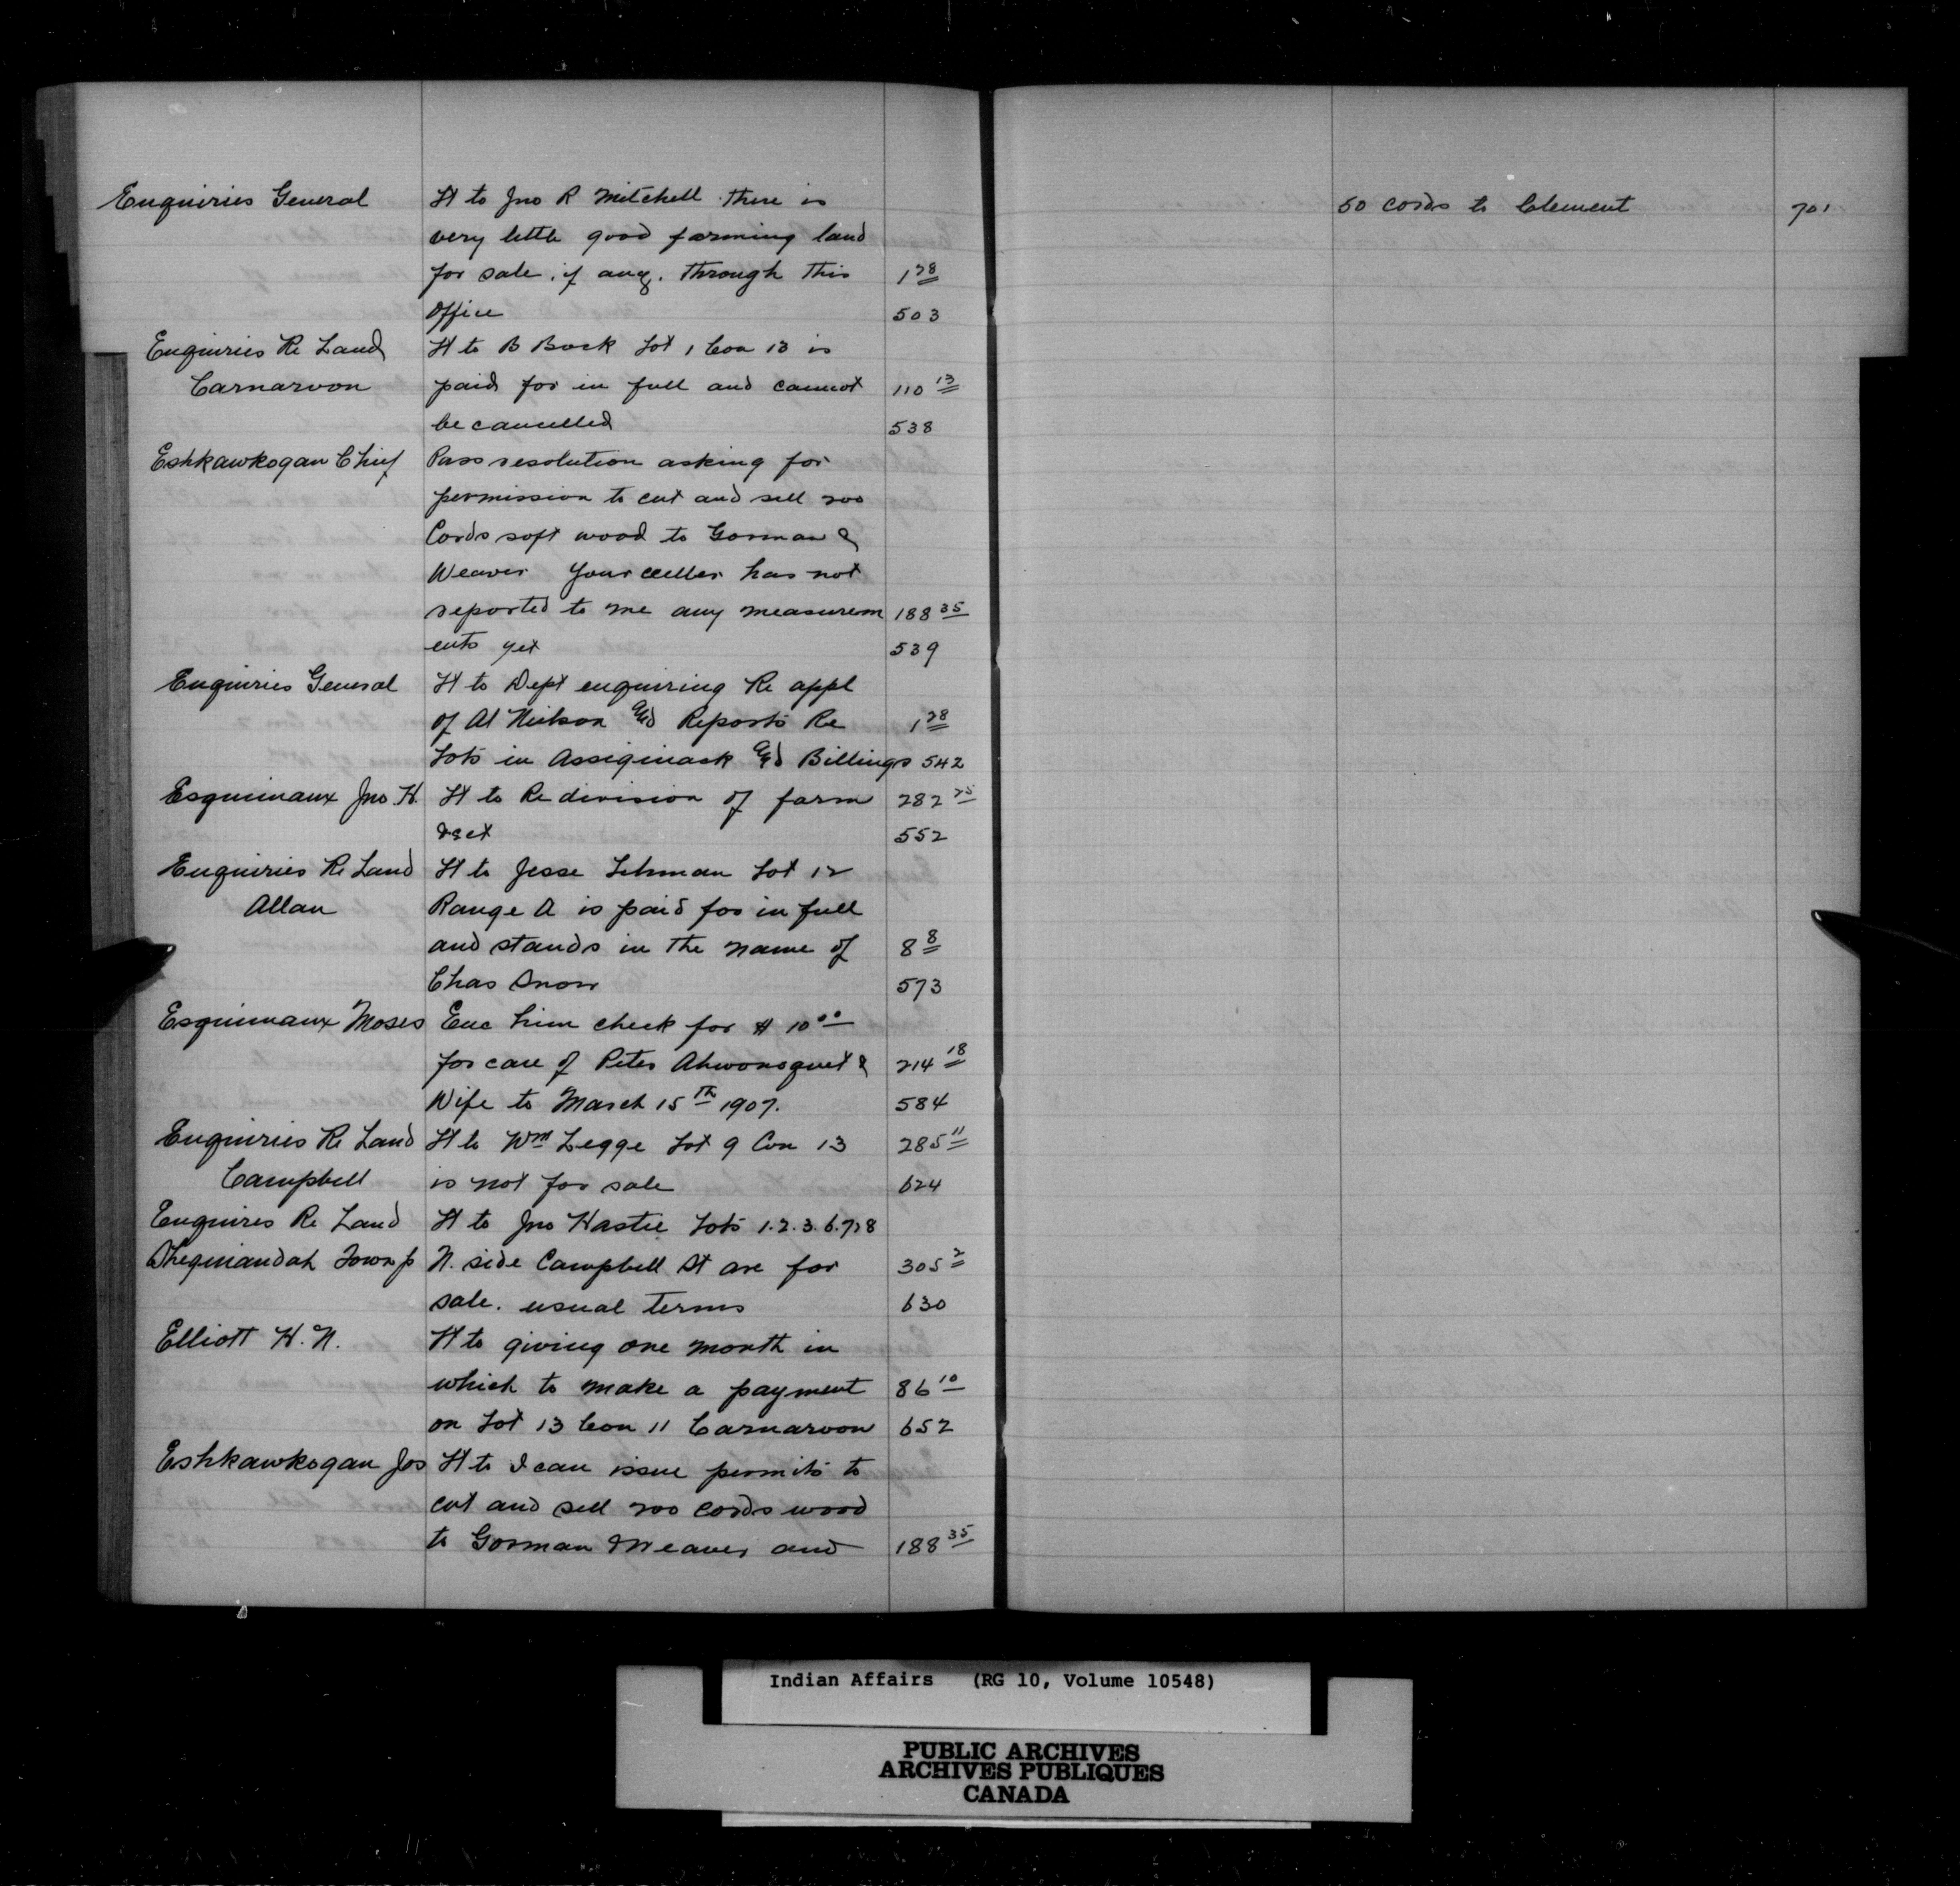 Enquiries General Lt to Jno R Mitchell there is
very little good farming land
for sale, if any, through this 1 28
office 503
Enquiries Re Land Lt to B Bock Lot 1 Con 13 is
Carnarvon paid for in full and cannot 110 13
be cancelled 538
Eshkawkogan Chief Pass resolution asking for
permission to cut and sell 200
Cords soft wood to Gorman &
Weaver Your culler has not
reported to me any measurem 188 35
ents yet 539
Enquiries General Lt to Dept enquiring Re appl
of Al and Reports Re 1 28
Lots in Assiginack and Billings 542
Esquimaux Jno H. Lt to Re division of farm 282 25
552
Enquiries Re Land Lt to Jesse Lehman Lot 12
Allan Range A is paid for in full
and stands in the name of 8 8
Chas Snow 573
Esquimaux Moses Enc him check for $ 10 00
for care of Peter Ahwonoquet & 214 18
Wife to March 15th 1907. 584
Enquiries Re Land Lt to Wm Legge Lot 9 Con 13 285 11
Campbell is not for sale 624
Enquires Re Land Lt to Jno Hastie Lots 1.2.3.6.7&8
Sheguiandah Townp N. side Campbell St are for 305 2
sale. usual terms 630
Elliott H. N. Lt to giving one month in
which to make a payment 86 10
on Lot 13 Con 11 Carnarvon 652
Eshkawkogan Jos Lt to I can issue permits to
cut and sell 200 cords wood
to Gorman & Weaver and 188 35
50 cords to Clement 701
Indian Affairs (RG 10, Volume 10548)
PUBLIC ARCHIVES
ARCHIVES PUBLIQUES
CANADA